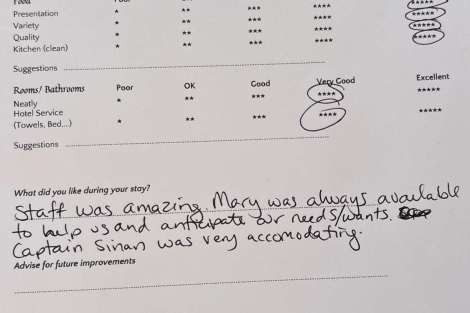 Food Poor OK
Presentation * ** *** **** *****
Variety * ** *** **** *****
Quality * ** *** **** *****
Kitchen (clean) * ** *** **** *****
Suggestions
Rooms/ Bathrooms Poor OK Good Very Good Excellent
Neatly * ** *** **** *****
Hotel Service
(Towels, Bed,...) * ** *** **** *****
Suggestions
What did you like during your stay?
Staff was amazing. Mary was always available
to help us and anticipate our needs/wants.
Captain Sinan was very accomodating.
Advise for future improvements